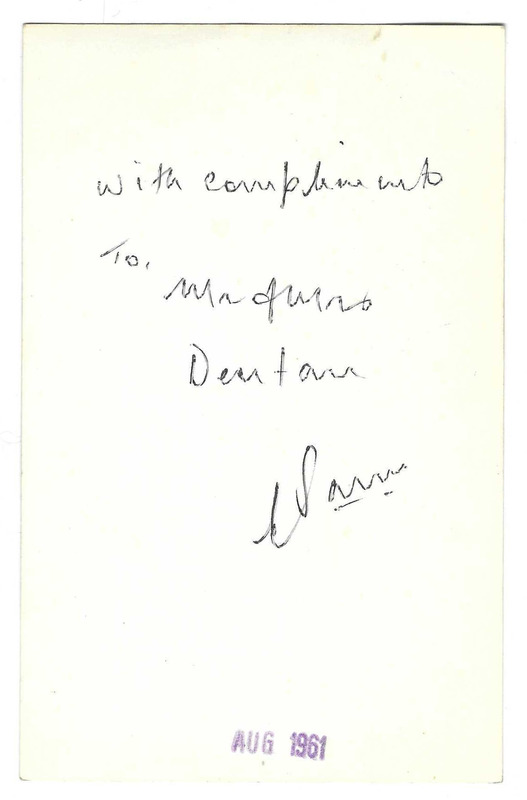 with compliments
To,
Mr & Mrs
Dentan
AUG 1961